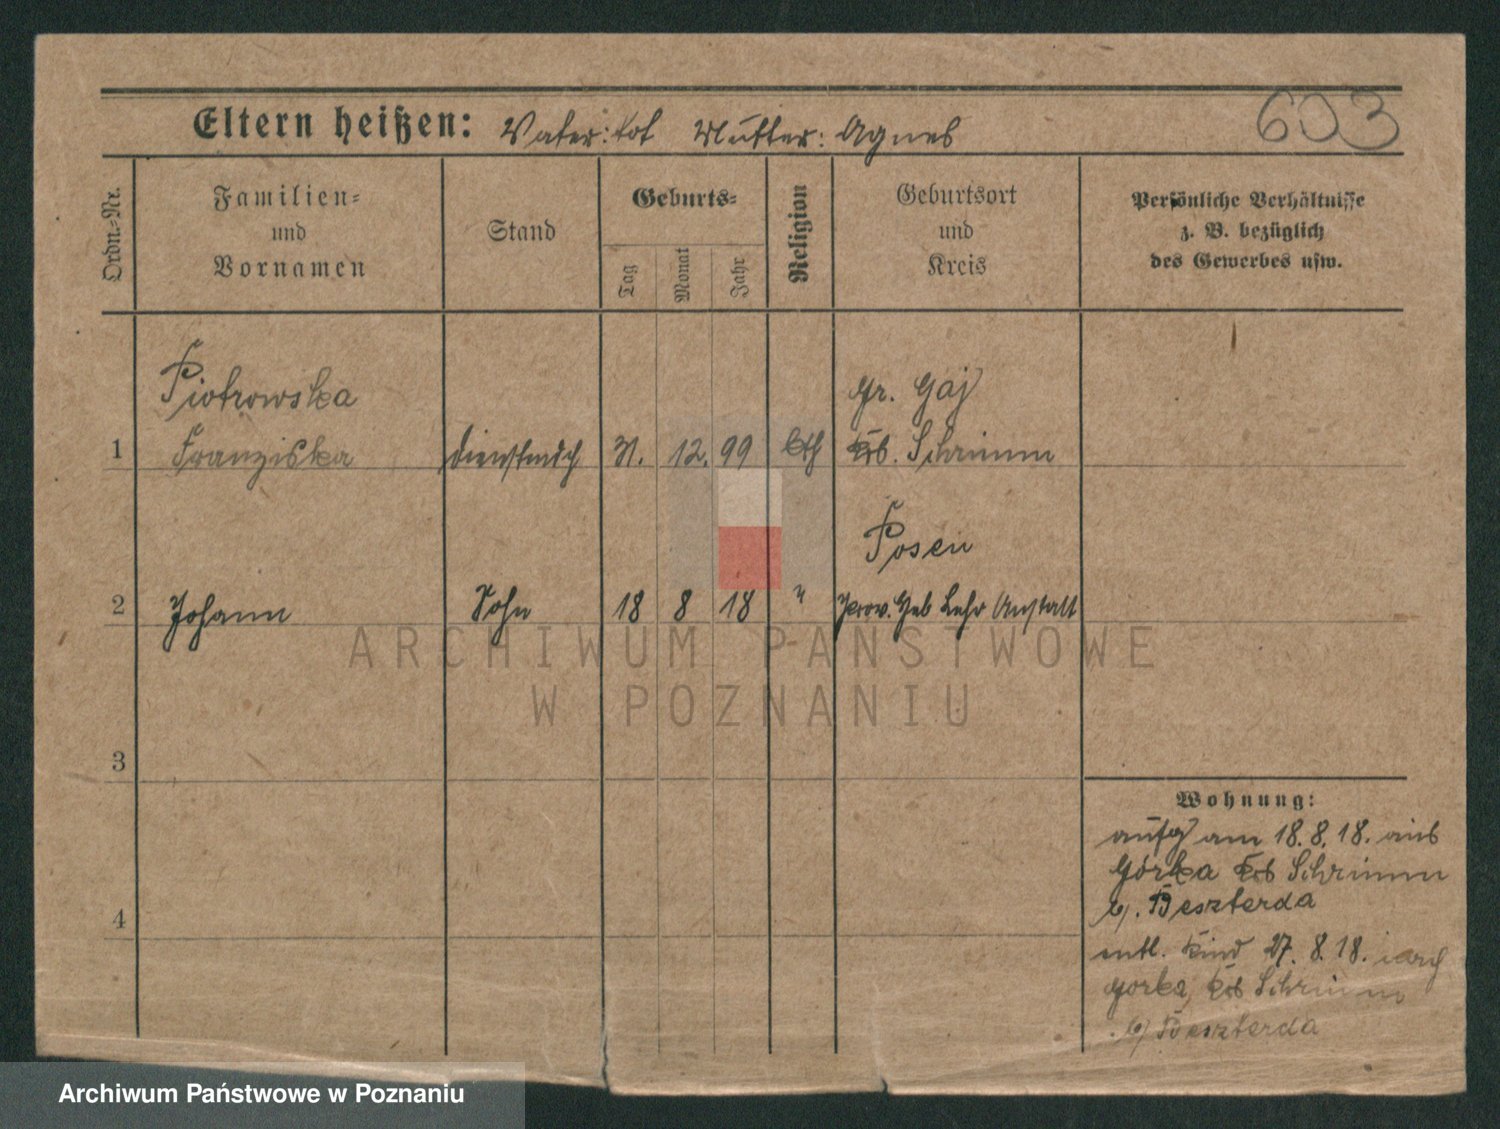 603
Eltern heißen: Vater: tot Mutter: Agnes
Ordn.-Nr.
Familien-
und
Vornamen
Stand
Geburts-
Tag
Monat
Jahr
Religion
Geburtsort
und
Kreis
Persönliche Verhältnisse
z. B. bezüglich
des Gewerbes usw.
Piotrowska
Gr. Gaj
1 Franziska Dienstmdch 31. 12. 99 kth Krs. Schrimm
Posen
2 Johann Sohn 18 8 18 " Prov. Heb Lehr Anstalt
ARCHIWUM PAŃSTWOWE
W POZNANIU
3
4
Wohnung:
aufg am 18.8.18. aus
Górka Krs Schrimm
b/. Beszterda
entl. Kind 27. 8. 18. nach
Gorka, Krs Schrimm
b/ Beszterda
Archiwum Państwowe w Poznaniu